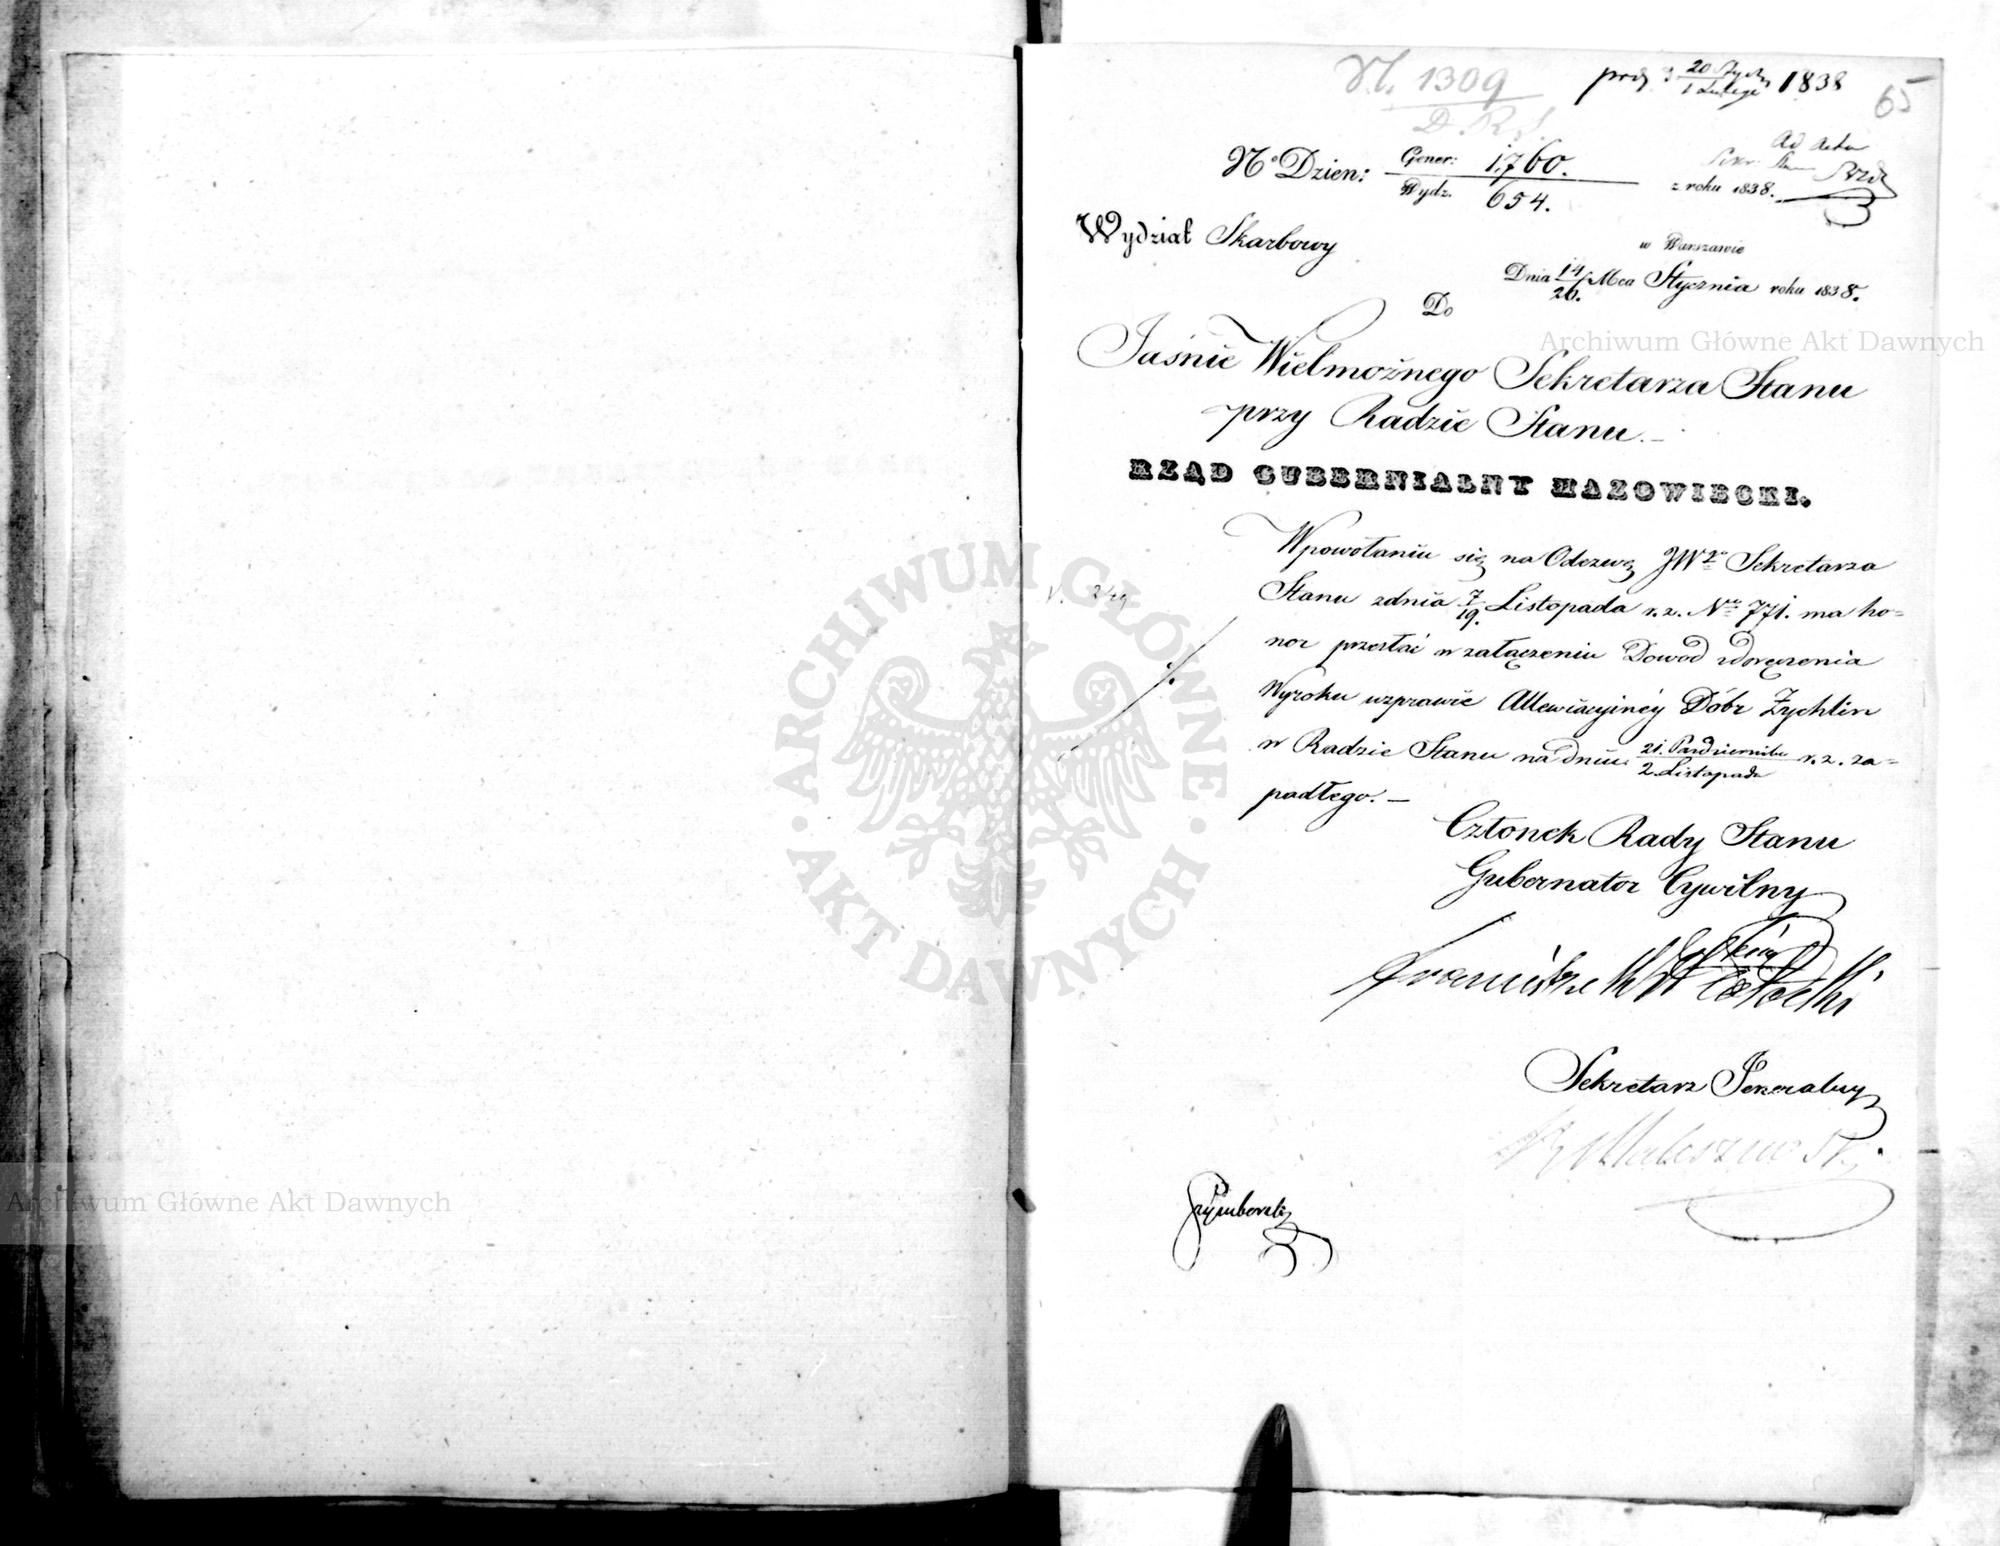 N. 1309
D. R. S.
prez 20 Stycz / 1 Lutego 1838
65
Ad Acta
No Dzien: Gener: 1,760. / Wydz. 654. z roku 1838.
Wydział Skarbowy
w Warszawie
Dnia 14/26. Mca Stycznia roku 1838.
Do
Jaśnie Wielmożnego Sekretarza Stanu
przy Radzie Stanu.
RZĄD GUBERNIALNY MAZOWIECKI.
W powołaniu się na Odezwę JWo Sekretarza
Stanu z dnia 7/19. Listopada r. z. Nro 771. ma ho=
nor przesłać w załączeniu Dowód doręczenia
Wyroku w sprawie Allewiacyinéy Dóbr Żychlin
w Radzie Stanu na dniu 21. Października / 2. Listopada r. z. za=
padłego. —
Członek Rady Stanu
Gubernator Cywilny
Franciszek Potocki
Sekretarz Jeneralny
Maleszewski
Archiwum Główne Akt Dawnych
Archiwum Główne Akt Dawnych
ARCHIWUM GŁÓWNE AKT DAWNYCH